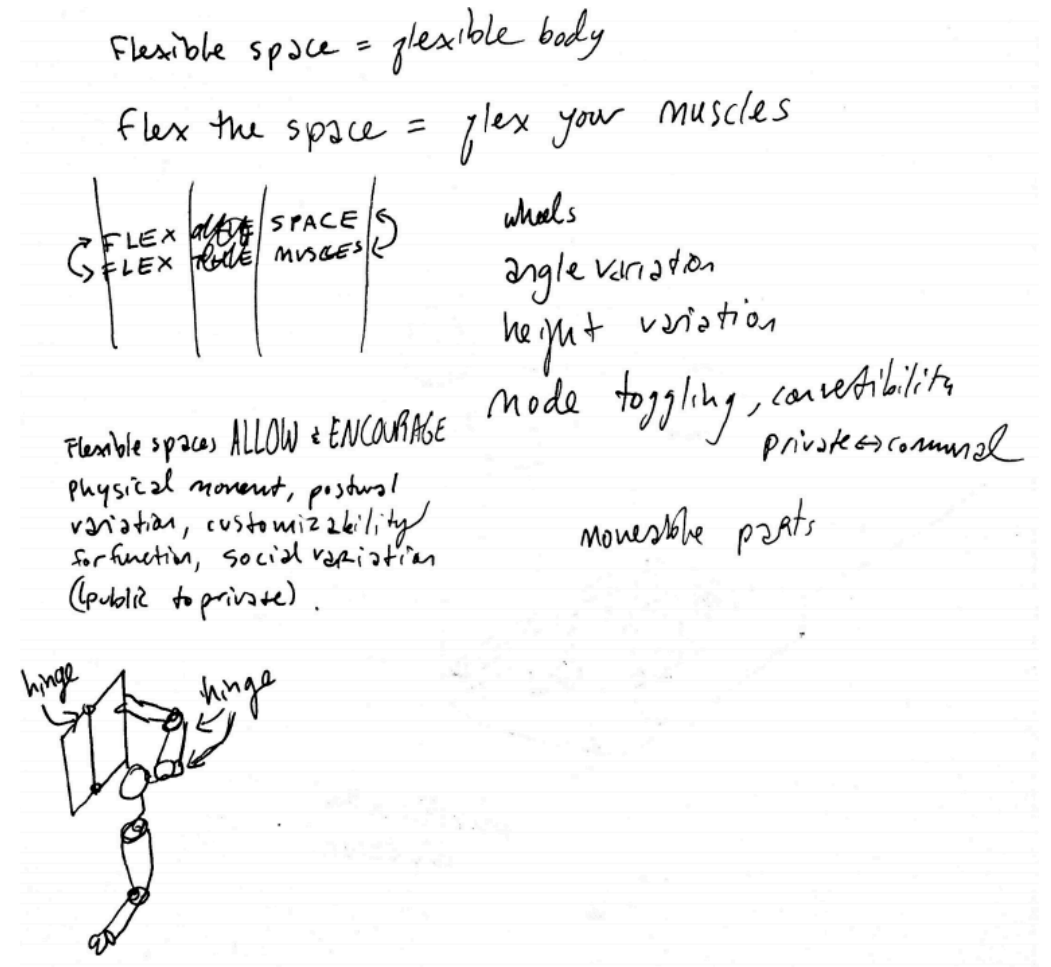 Flexible space = flexible body
Flex the space = flex your muscles
FLEX SPACE
FLEX MUSCLES
wheels
angle variation
height variation
mode toggling, convertibility
private ↔ communal
Flexible spaces ALLOW & ENCOURAGE
physical movemt, postural
variation, customizability
for function, social variation
(public to private).
moveable parts
hinge
hinge